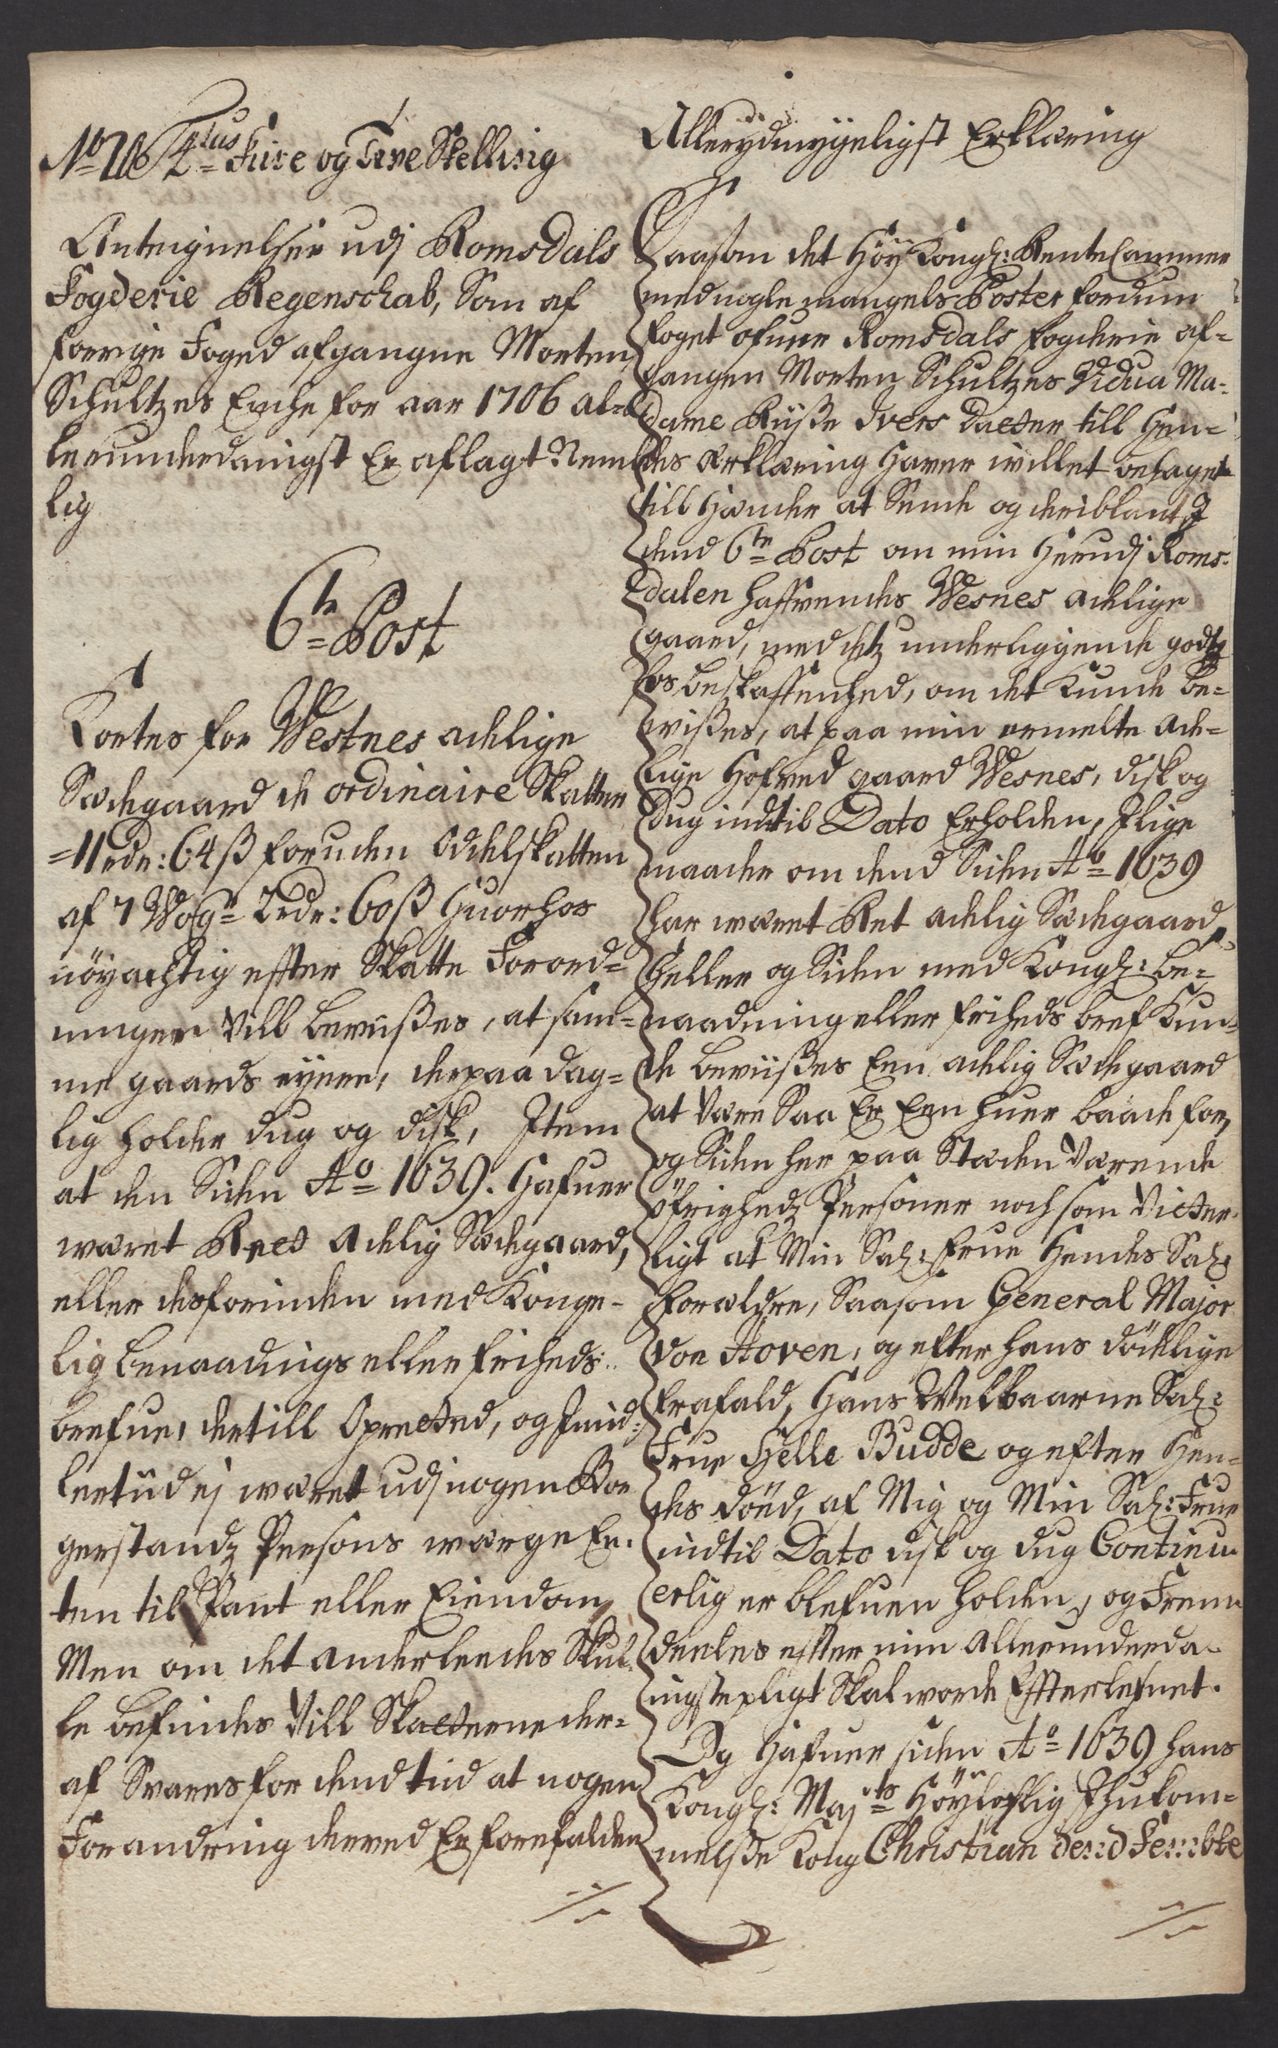 No 216 4tus Fiire og Tiue Skelling
Anteignelser udj Romsdals
Fogderie Regenschab, Som af
forige Foged afgangne Morten
Schultzes Enche for aar 1706 al-
lerunderdanigst Er aflagt Nem-
lig
6te Post
Kortes for Westnes adelige
Sædegaard de ordinaire Skatter
11 rdr: 64 ß foruden Odelskatten
af 7 Wog 2 rdr: 60 ß Huorhos
nöyachtig effter Skatte Forord-
ningen Vill beviißes, at sam-
me gaards eyere, derpaa dag-
lig holder dug og disk, Item
at den Siden Ao 1639. Hafuer
været Ret Adelig Sædegaard,
eller desforinden med Konge-
lig benaadings eller friheds-
brefue, dertill Opretted, og Imid-
lertiid ej været udj nogen Bor
gerstandz Persons værge En-
ten til Pant eller Eiendom,
Men om det anderleedes Skul-
le befindes Vill Skatterne der-
af Svares for dend tiid at nogen
Forandring derved Er forefalden
Allerydmygeligst Erklæring
Saasom det Höy Kongl: Rente Cammer
med nogle mangels Poster fordum
foget ofuer Romsdals fogderie af-
gangen Morten Schultzes Vidua Ma-
dame Riiße Ivers Datter till Hen-
des Erklæring haver willet behaget
till Hænder at Sende og deriblant J
dend 6te Post om min Herudj Roms-
dalen hafvendes Wesnes adelige
gaard, med detz underliggende godtz
for beskaffenhed, om det kunde be-
wißes, at paa min ermelte ade-
lige Hofved gaard Wesnes, disk og
Dug indtil Dato Erholden, J lige
maader om dend Siden Ao 1639
har været Ret adelig Sædegaard
heller og Siden med Kongl: be-
naadning eller friheds bref Kun-
de beviißes Een adelig Sædegaard
at være Saa Er Een huer baade for,
og Siden her paa Stæden Værende
öfrighedz Personer noch som Vitter-
ligt at Min Sal: Frue Hendes Sal:
Forældre, Saasom General Major
von Hoven, og efter hans dödelige
frafald, Hans Welbaarne Sal:
Frue Helle Budde og efter Hen-
des död, af Mig og Min Sal: Frue
indtil Dato disk og dug Continu-
erlig er blefuen holden, og Frem-
deeles effter min allerunderda-
nigste pligt Skal worde Effterlefuet.
Og Hafuer siden Ao 1639 hans
Kongl: Mayts Höyloflig Ihukom-
melße Kong Christian dend Fembte